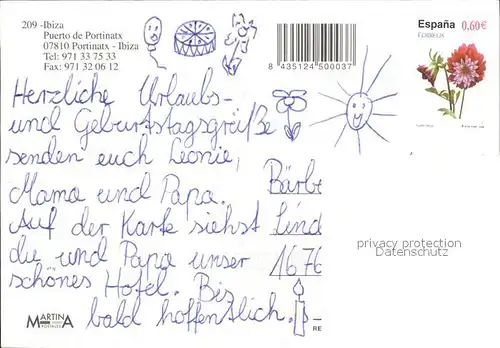 209 -Ibiza
Puerto de Portinatx
07810 Portinatx - Ibiza
Tel: 971 33 75 33
Fax: 971 32 06 12
8 435124 500037
España 0,60€
Herzliche Urlaubs-
und Geburtstagsgrüße
senden euch Leonie,
Mama und Papa.
Auf der Karte siehst
du und Papa unser
schönes Hotel. Bis
bald hoffentlich.!
Bärbe
Lind
1676
privacy protection
Datenschutz
MARTINA
POSTALES
RE